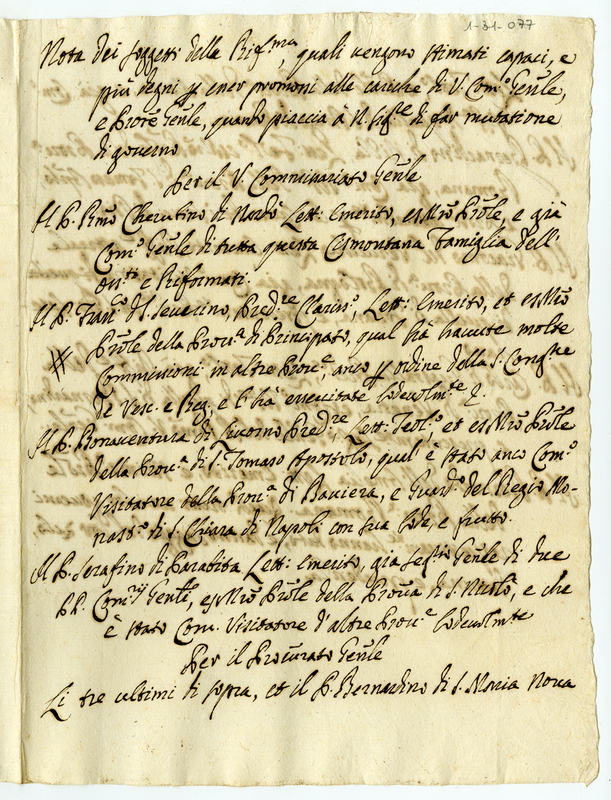 1-31-077
Nota dei soggetti della Rif.ma, quali vengono stimati capaci, e
più degni p esser promossi alle cariche di V. Com.o Gen̄le,
e Prore Gen̄le, quando piaccia à N. Sig.re di far mutatione
di governo
Per il V. Commissariato Gen̄le
Il P. Rm̄o Cherubino di Nardò Lett: emerito, ex Mrō Prōle, e già
Com.o Gen̄le di tutta questa Cismontana famiglia dell'
Oss.ti e Riformati.
Il P. Fran.o di S. Severino, Pred.re Clariss.o, Lett: emerito, et ex Mrō
Prōle della Prov.a di Principato, qual hà havute molte
Commissioni in altre Prov.e, anco p ordine della S. Cong.ne
de Vesc. e Reg., e l'hà essercitate lodevolm.te
Il P. Bonaventura di Pred.re, Lett: Teol.o, et ex Mrō Prōle
della Prov.a di S. Tomaso Apostolo, qual' è stato anco Com.o
Visitatore della Prov.a di Baviera, e Guard.o del Regio Mo-
nast.o di S. Chiara di Napoli con sua lode, e frutto.
Il P. Serafino di Parabita Lett: emerito, già Seg.rio Gen̄le di due
PP. Com.rij Gen̄li, ex Mrō Prōle della Prov̄a di S. Nicolò, e che
è stato Com. Visitatore d'altre Prov.e lodevolm̄te
Per il Procurato Gen̄le
Li tre ultimi di sopra, et il P. Bernardino di S. Maria Nova